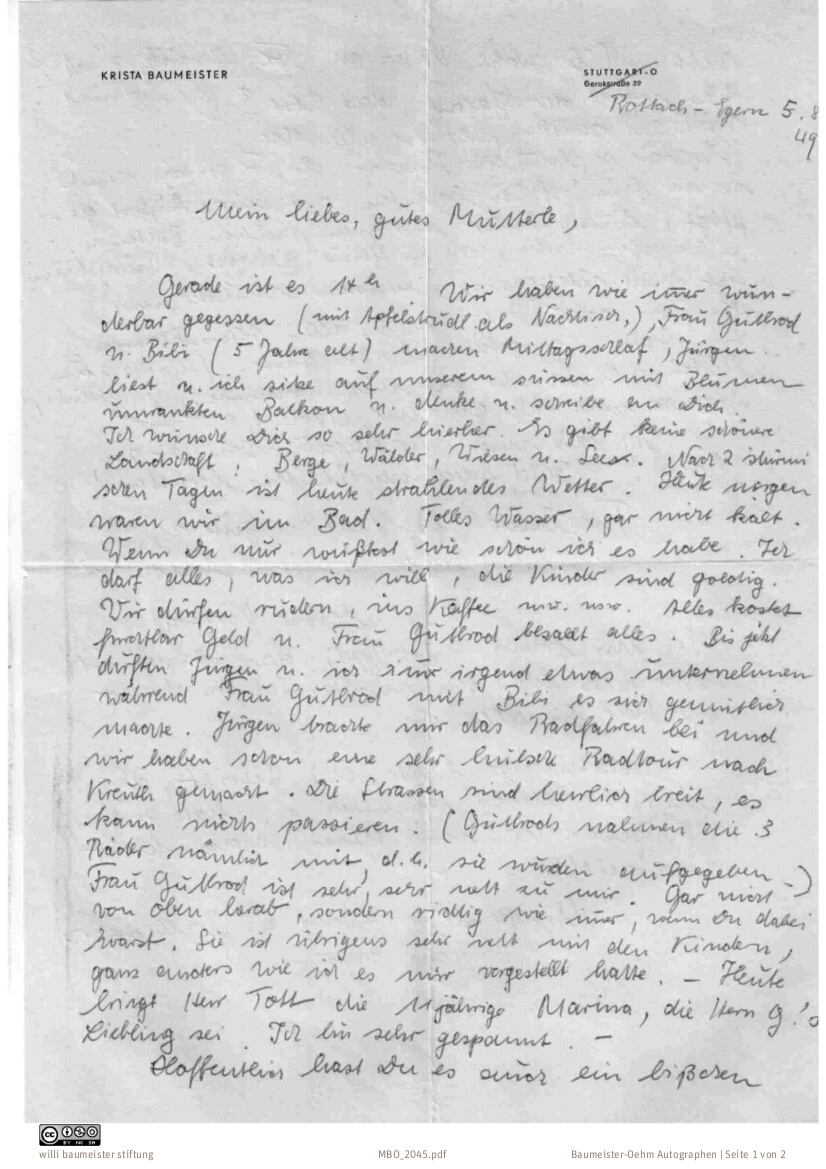 KRISTA BAUMEISTER
STUTTGART-O
Gerokstraße 39
Rottach-Egern 5. 8
49
Mein liebes, gutes Mutterle,
Gerade ist es 1 h Wir haben wie imer wun-
derbar gegessen (mit Apfelstrudl als Nachtisch,), Frau Gutbrod
u. Bibi (5 Jahre alt) machen Mittagsschlaf, Jürgen
liest u. ich sitze auf unserem süssen mit Blumen
umrankten Balkon u. denke u. schreibe an Dich.
Ich wünsche Dich so sehr hierher. Es gibt keine schönere
Landschaft. Berge, Wälder, Wiesen u. Seen. Nach 2 stürmi
schen Tagen ist heute strahlendes Wetter. Heute morgen
waren wir im Bad. Tolles Wasser, gar nicht kalt.
Wenn Du nur wüßtest wie schön ich es habe. Ich
darf alles, was ich will, die Kinder sind goldig.
Wir dürfen rudern, ins Kaffee usw. usw. Alles kostet
furchtbar Geld u. Frau Gutbrod bezahlt alles. Bis jetzt
durften Jürgen u. ich immer irgend etwas unternehmen
während Frau Gutbrod mit Bibi es sich gemütlich
machte. Jürgen brachte mir das Radfahren bei und
wir haben schon eine sehr hübsche Radtour nach
Kreuth gemacht. Die Strassen sind herrlich breit, es
kann nichts passieren. (Gutbrods nahmen die 3
Räder nämlich mit, d.h. sie wurden aufgegeben.)
Frau Gutbrod ist sehr, sehr nett zu mir. Gar nicht
von oben herab, sondern richtig wie imer, wenn Du dabei
warst. Sie ist übrigens sehr nett mit den Kindern,
ganz anders wie ich es mir vorgestellt hatte. – Heute
bringt Herr Tott die 11 jährige Marina, die Herrn G.'s
Liebling sei. Ich bin sehr gespannt. –
Hoffentlich hast Du es auch ein bißchen
willi baumeister stiftung
MBO_2045.pdf
Baumeister-Oehm Autographen | Seite 1 von 2